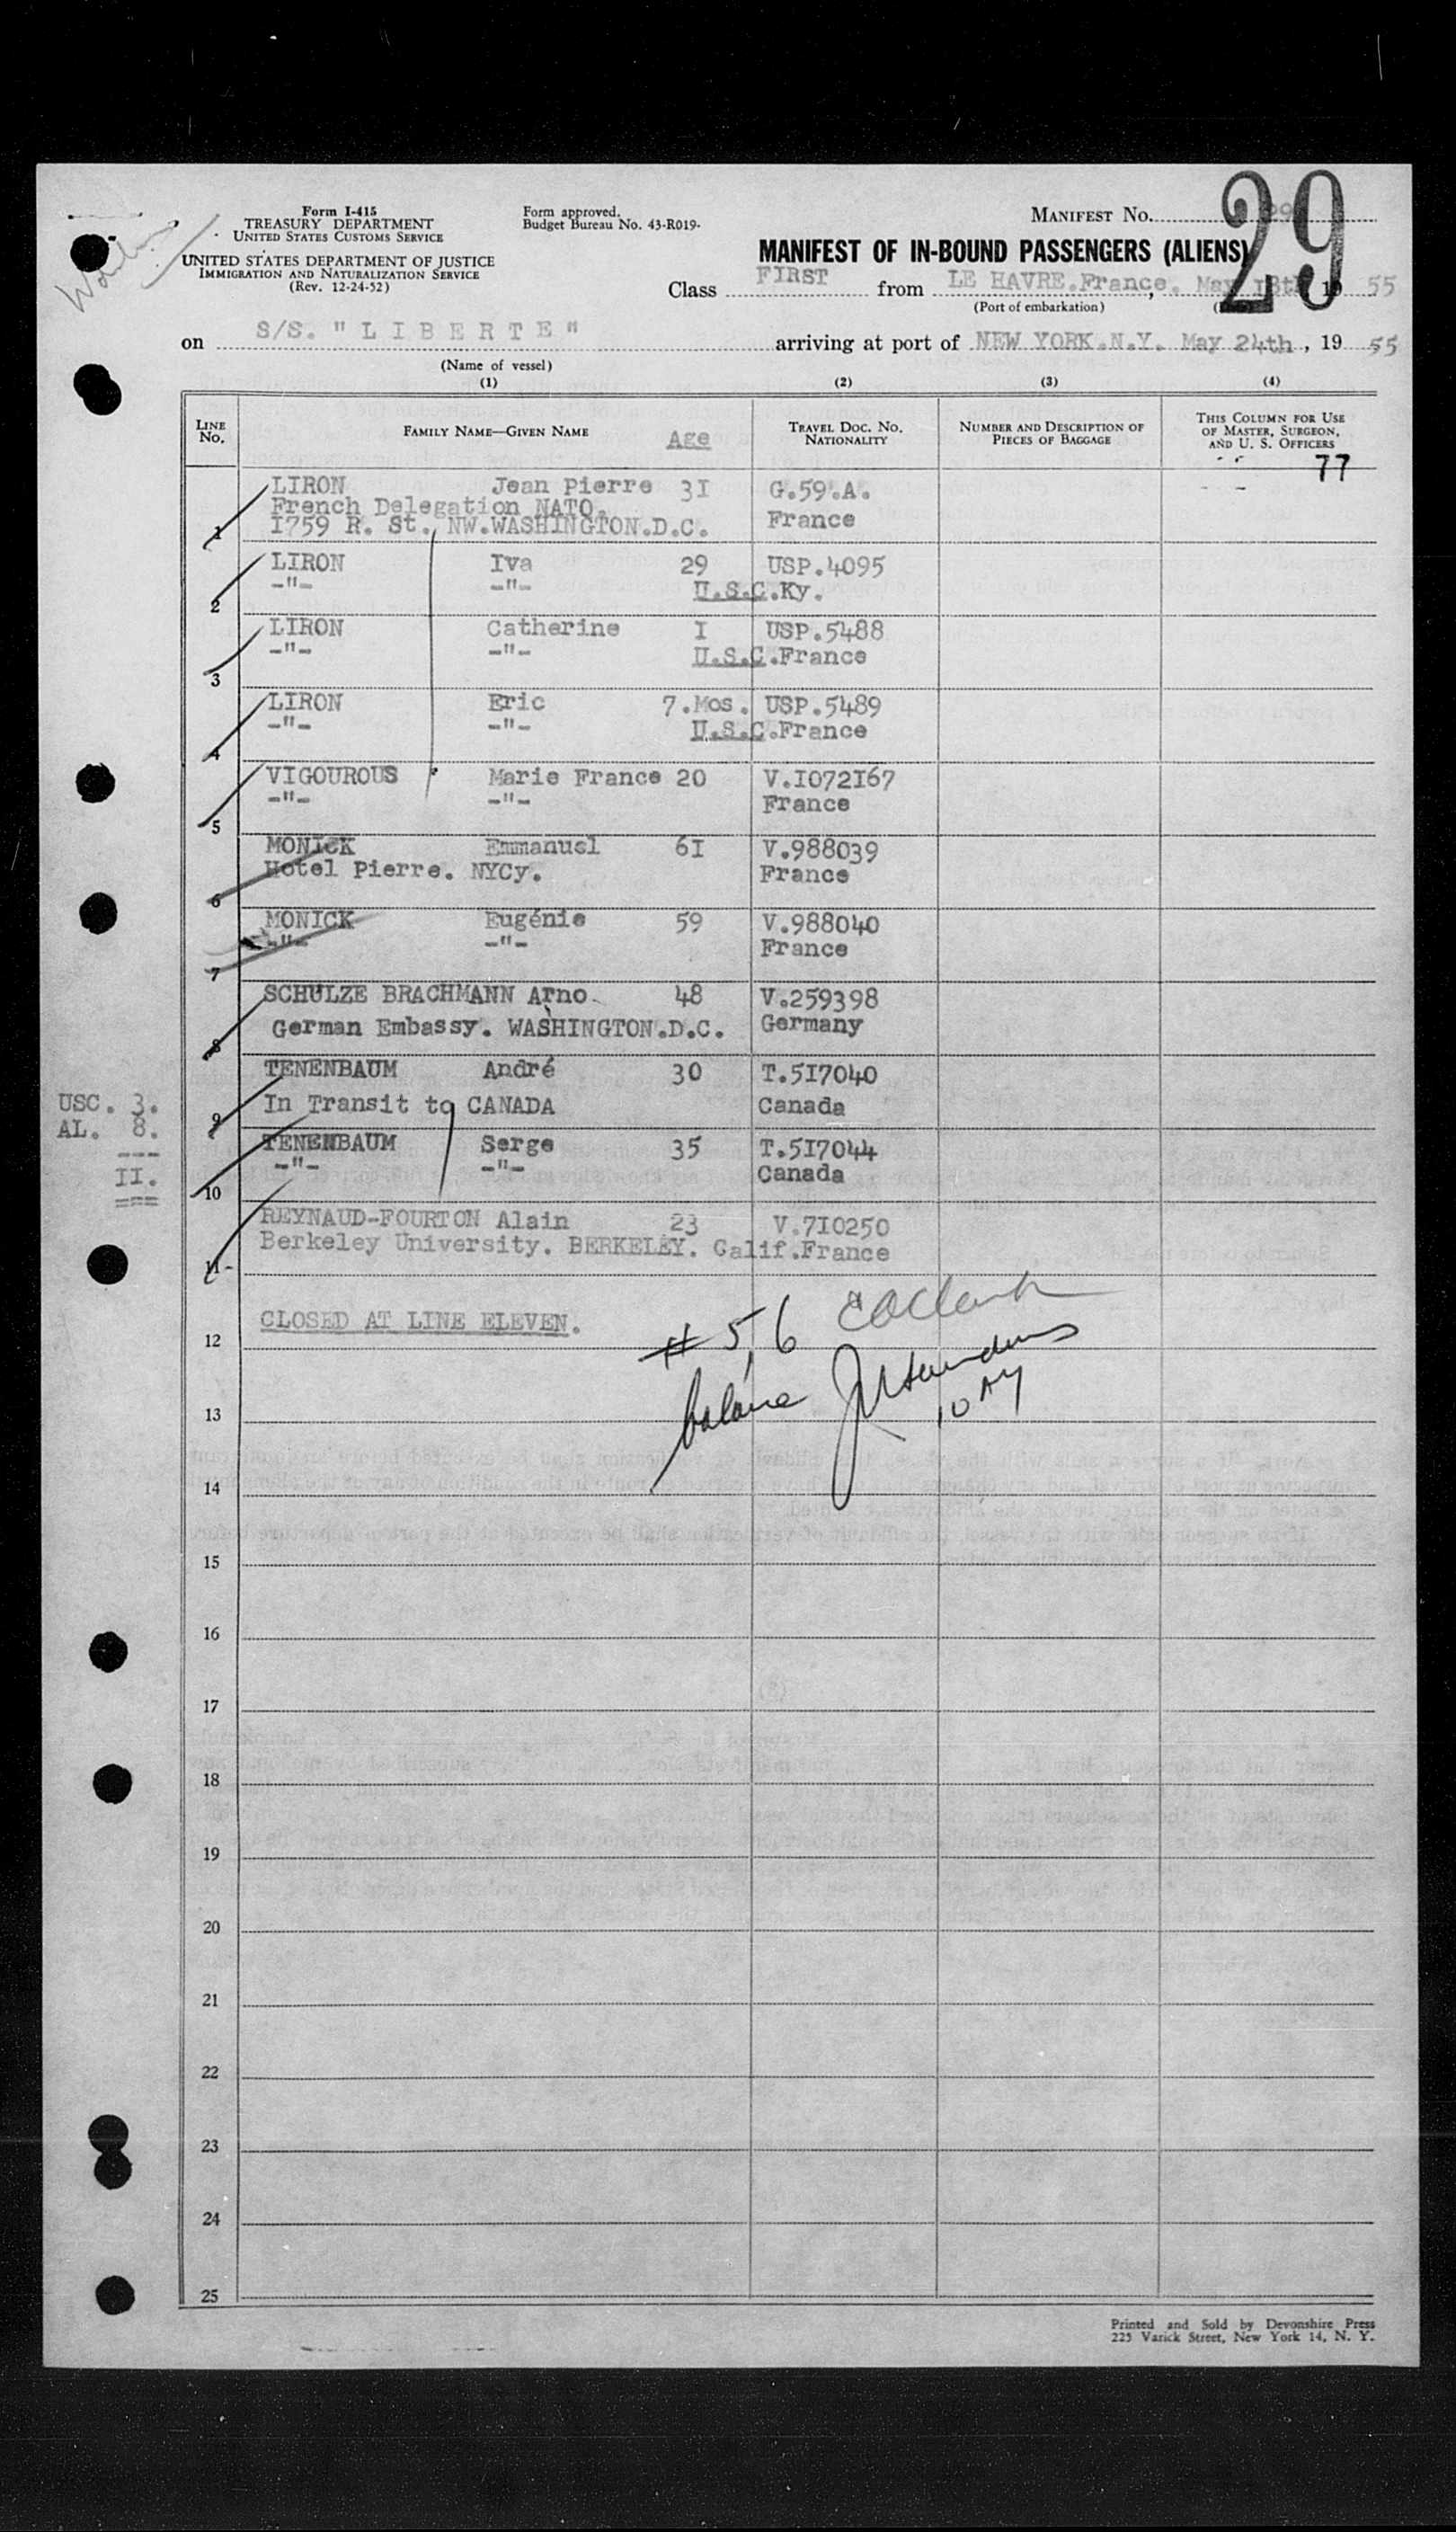 Form I-415
TREASURY DEPARTMENT
UNITED STATES CUSTOMS SERVICE
UNITED STATES DEPARTMENT OF JUSTICE
IMMIGRATION AND NATURALIZATION SERVICE
(Rev. 12-24-52)
Form approved.
Budget Bureau No. 43-R019-
MANIFEST No.
29
MANIFEST OF IN-BOUND PASSENGERS (ALIENS)
Class FIRST from LE HAVRE.France. May 18th 1955
(Port of embarkation)
on S/S. "LIBERTE" arriving at port of NEW YORK.N.Y. May 24th, 1955
(Name of vessel)
(1) (2) (3) (4)
LINE No. FAMILY NAME—GIVEN NAME Age TRAVEL DOC. NO. NATIONALITY NUMBER AND DESCRIPTION OF PIECES OF BAGGAGE THIS COLUMN FOR USE OF MASTER, SURGEON, AND U. S. OFFICERS
77
LIRON Jean Pierre 3I G.59.A.
French Delegation NATO.
1 I759 R. St. NW.WASHINGTON.D.C. France
LIRON Iva 29 USP.4095
2 -"- -"- U.S.C.Ky.
LIRON Catherine I USP.5488
3 -"- -"- U.S.C.France
LIRON Eric 7.Mos. USP.5489
4 -"- -"- U.S.C.France
VIGOUROUS Marie France 20 V.I072I67
5 -"- -"- France
MONICK Emmanuel 6I V.988039
6 Hotel Pierre. NYCy. France
MONICK Eugénie 59 V.988040
7 -"- -"- France
SCHULZE BRACHMANN Arno 48 V.259398
8 German Embassy. WASHINGTON.D.C. Germany
TENENBAUM André 30 T.5I7040
9 In Transit to CANADA Canada
TENENBAUM Serge 35 T.5I7044
10 -"- -"- Canada
USC. 3.
AL. 8.
---
II.
===
REYNAUD-FOURTON Alain 23 V.7I0250
11- Berkeley University. BERKELEY. Calif.France
12 CLOSED AT LINE ELEVEN.
# 5,6
13
14
15
16
17
18
19
20
21
22
23
24
25
Printed and Sold by Devonshire Press
225 Varick Street, New York 14, N. Y.